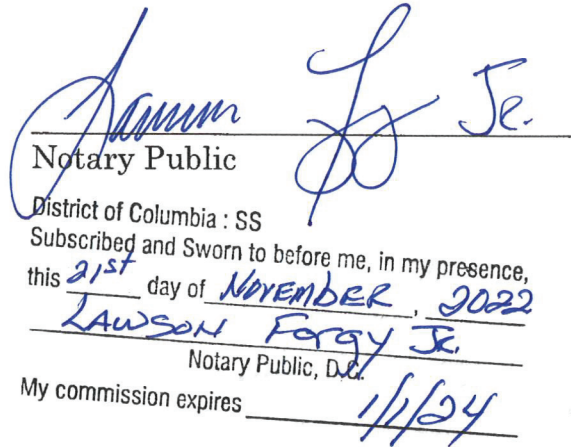 Jr.
Notary Public
District of Columbia : SS
Subscribed and Sworn to before me, in my presence,
this 21st day of NOVEMBER, 2022
LAWSON Forgy Jr.
Notary Public, D.C.
My commission expires 1/1/24